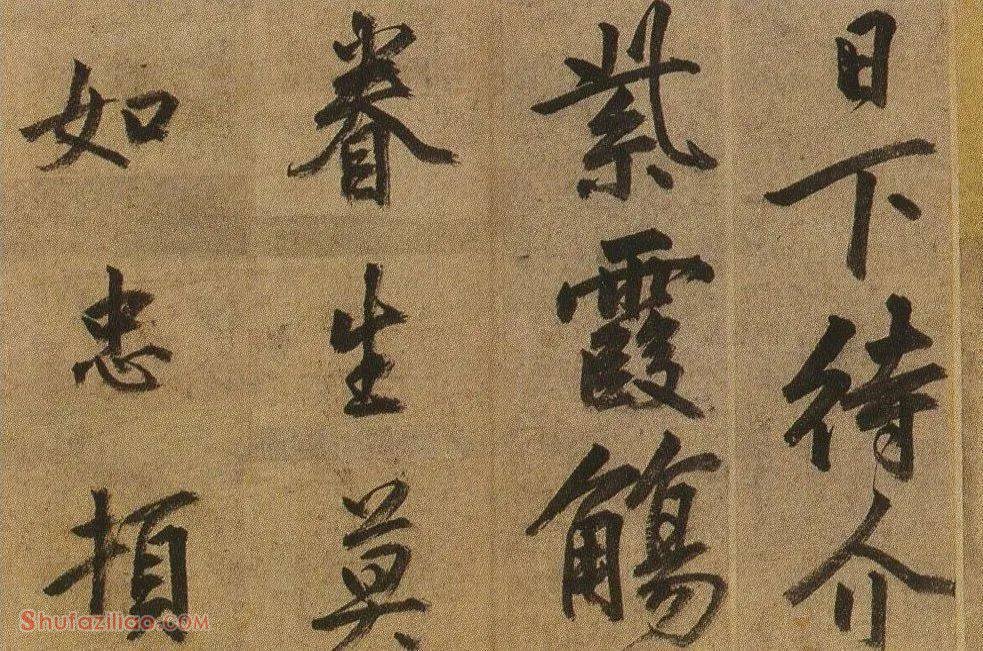 日下待介
紫霞觴
眷生莫
如忠頓
Shufaziliao.com